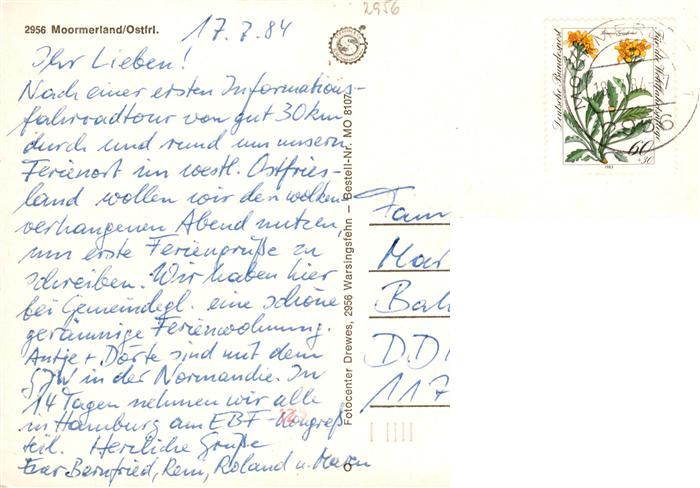 2956
2956 Moormerland/Ostfrl.
17.7.84
Ihr Lieben!
Nach einer ersten Informations-
fahrradtour von gut 30 km
durch und rund um unsern
Ferienort im westl. Ostfries-
land wollen wir den wolken-
verhangenen Abend nutzen,
um erste Feriengrüße zu
schreiben. Wir haben hier
bei Gemeindegl. eine schöne
geräumige Ferienwohnung.
Antje + Dörte sind mit dem
GJW in der Normandie. In
14 Tagen nehmen wir alle
in Hamburg am EBF-Kongreß
teil. Herzliche Grüße
Bernfried, Roland u.
Fotocenter Drewes, 2956 Warsingsfehn – Bestell-Nr. MO 8107
Deutsche Bundespost
60
+30
1983
Fam
Mar
Bah
DD
117